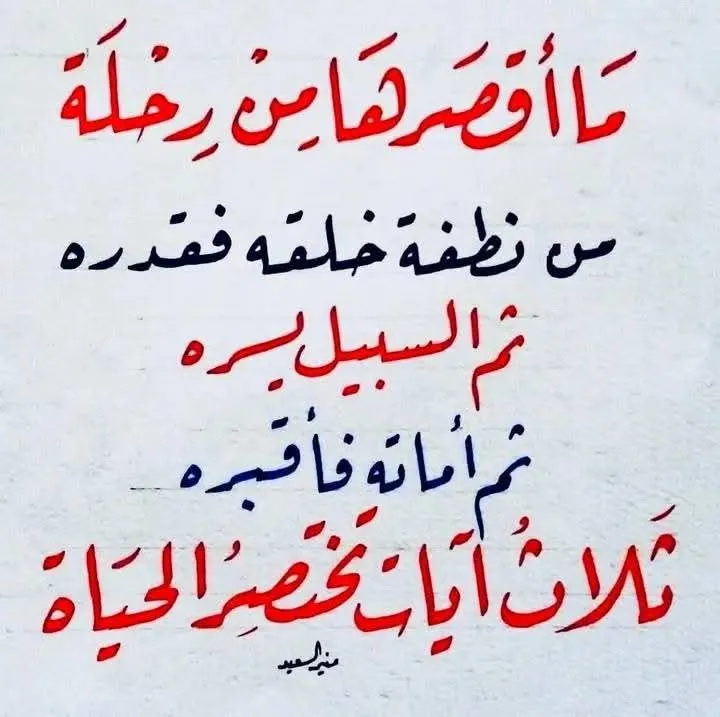 مَا أَقصَرهَا مِنْ رِحْلَة
من نطفة خلقه فقدره
ثم السبيل يسره
ثم أماته فأقبره
ثَلاثُ آيَات تختَصِرُ الحيَاة
منير السعيد